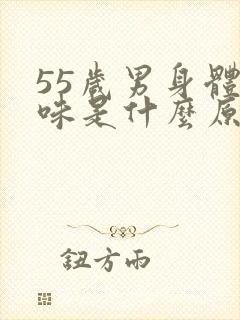 55歲男身體
味是什麼原
鈕方雨